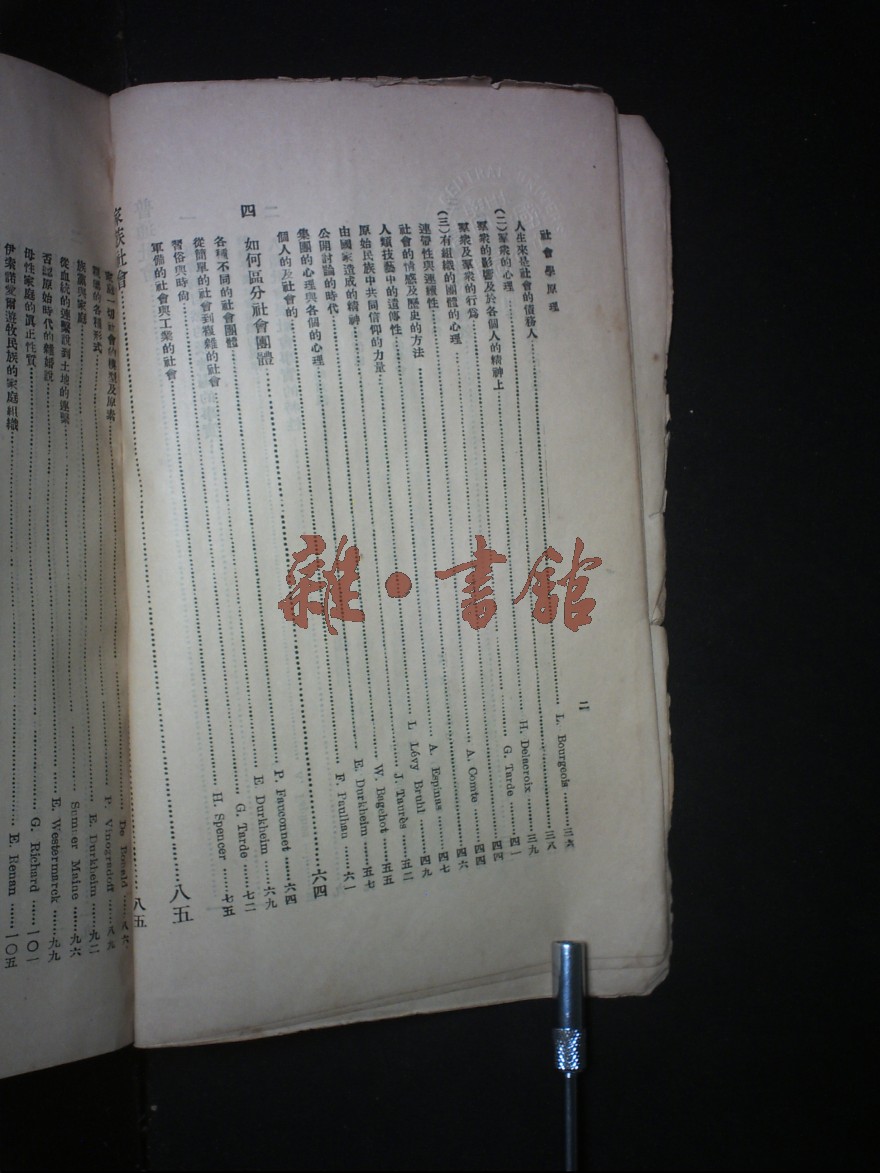 社會學原理 二
人生來是社會的債務人 L. Bourgeois 三六
(二)羣衆的心理 三八
羣衆的影響及於各個人的精神上 H. Delacroix 三九
羣衆及羣衆的行爲 G. Tarde 四一
(三)有組織的團體的心理 四四
連帶性與連續性 四四
社會的情感及歷史的方法 A. Comte 四六
人類技藝中的遺傳性 A. Espinas 四七
原始民族中共同信仰的力量 L. Lévy Bruhl 四九
由國家造成的精神 J. Taurès 五二
公開討論的時代 W. Bagehot 五五
集團的心理與各個的心理 E. Durkheim 五七
個人的及社會的 F. Paulhan 六一
四 如何區分社會團體 六四
各種不同的社會團體 P. Fauconnet 六四
從簡單的社會到複雜的社會 E. Durkheim 六九
習俗與時尙 G. Tarde 七二
軍備的社會與工業的社會 H. Spencer 七五
八五
家族社會 八五
家庭一切社會的模型及原素 De Bonald 八六
親屬的各種形式 P. Vinogradoff 八九
族黨與家庭 E. Durkheim 九二
從血統的連繫說到土地的連繫 Sumner Maine 九六
否認原始時代的雜婚說 E. Westermarck 九九
母性家庭的眞正性質 G. Richard 一〇一
伊索諾愛爾游牧民族的家庭組織 E. Renan 一〇五
雜·書館